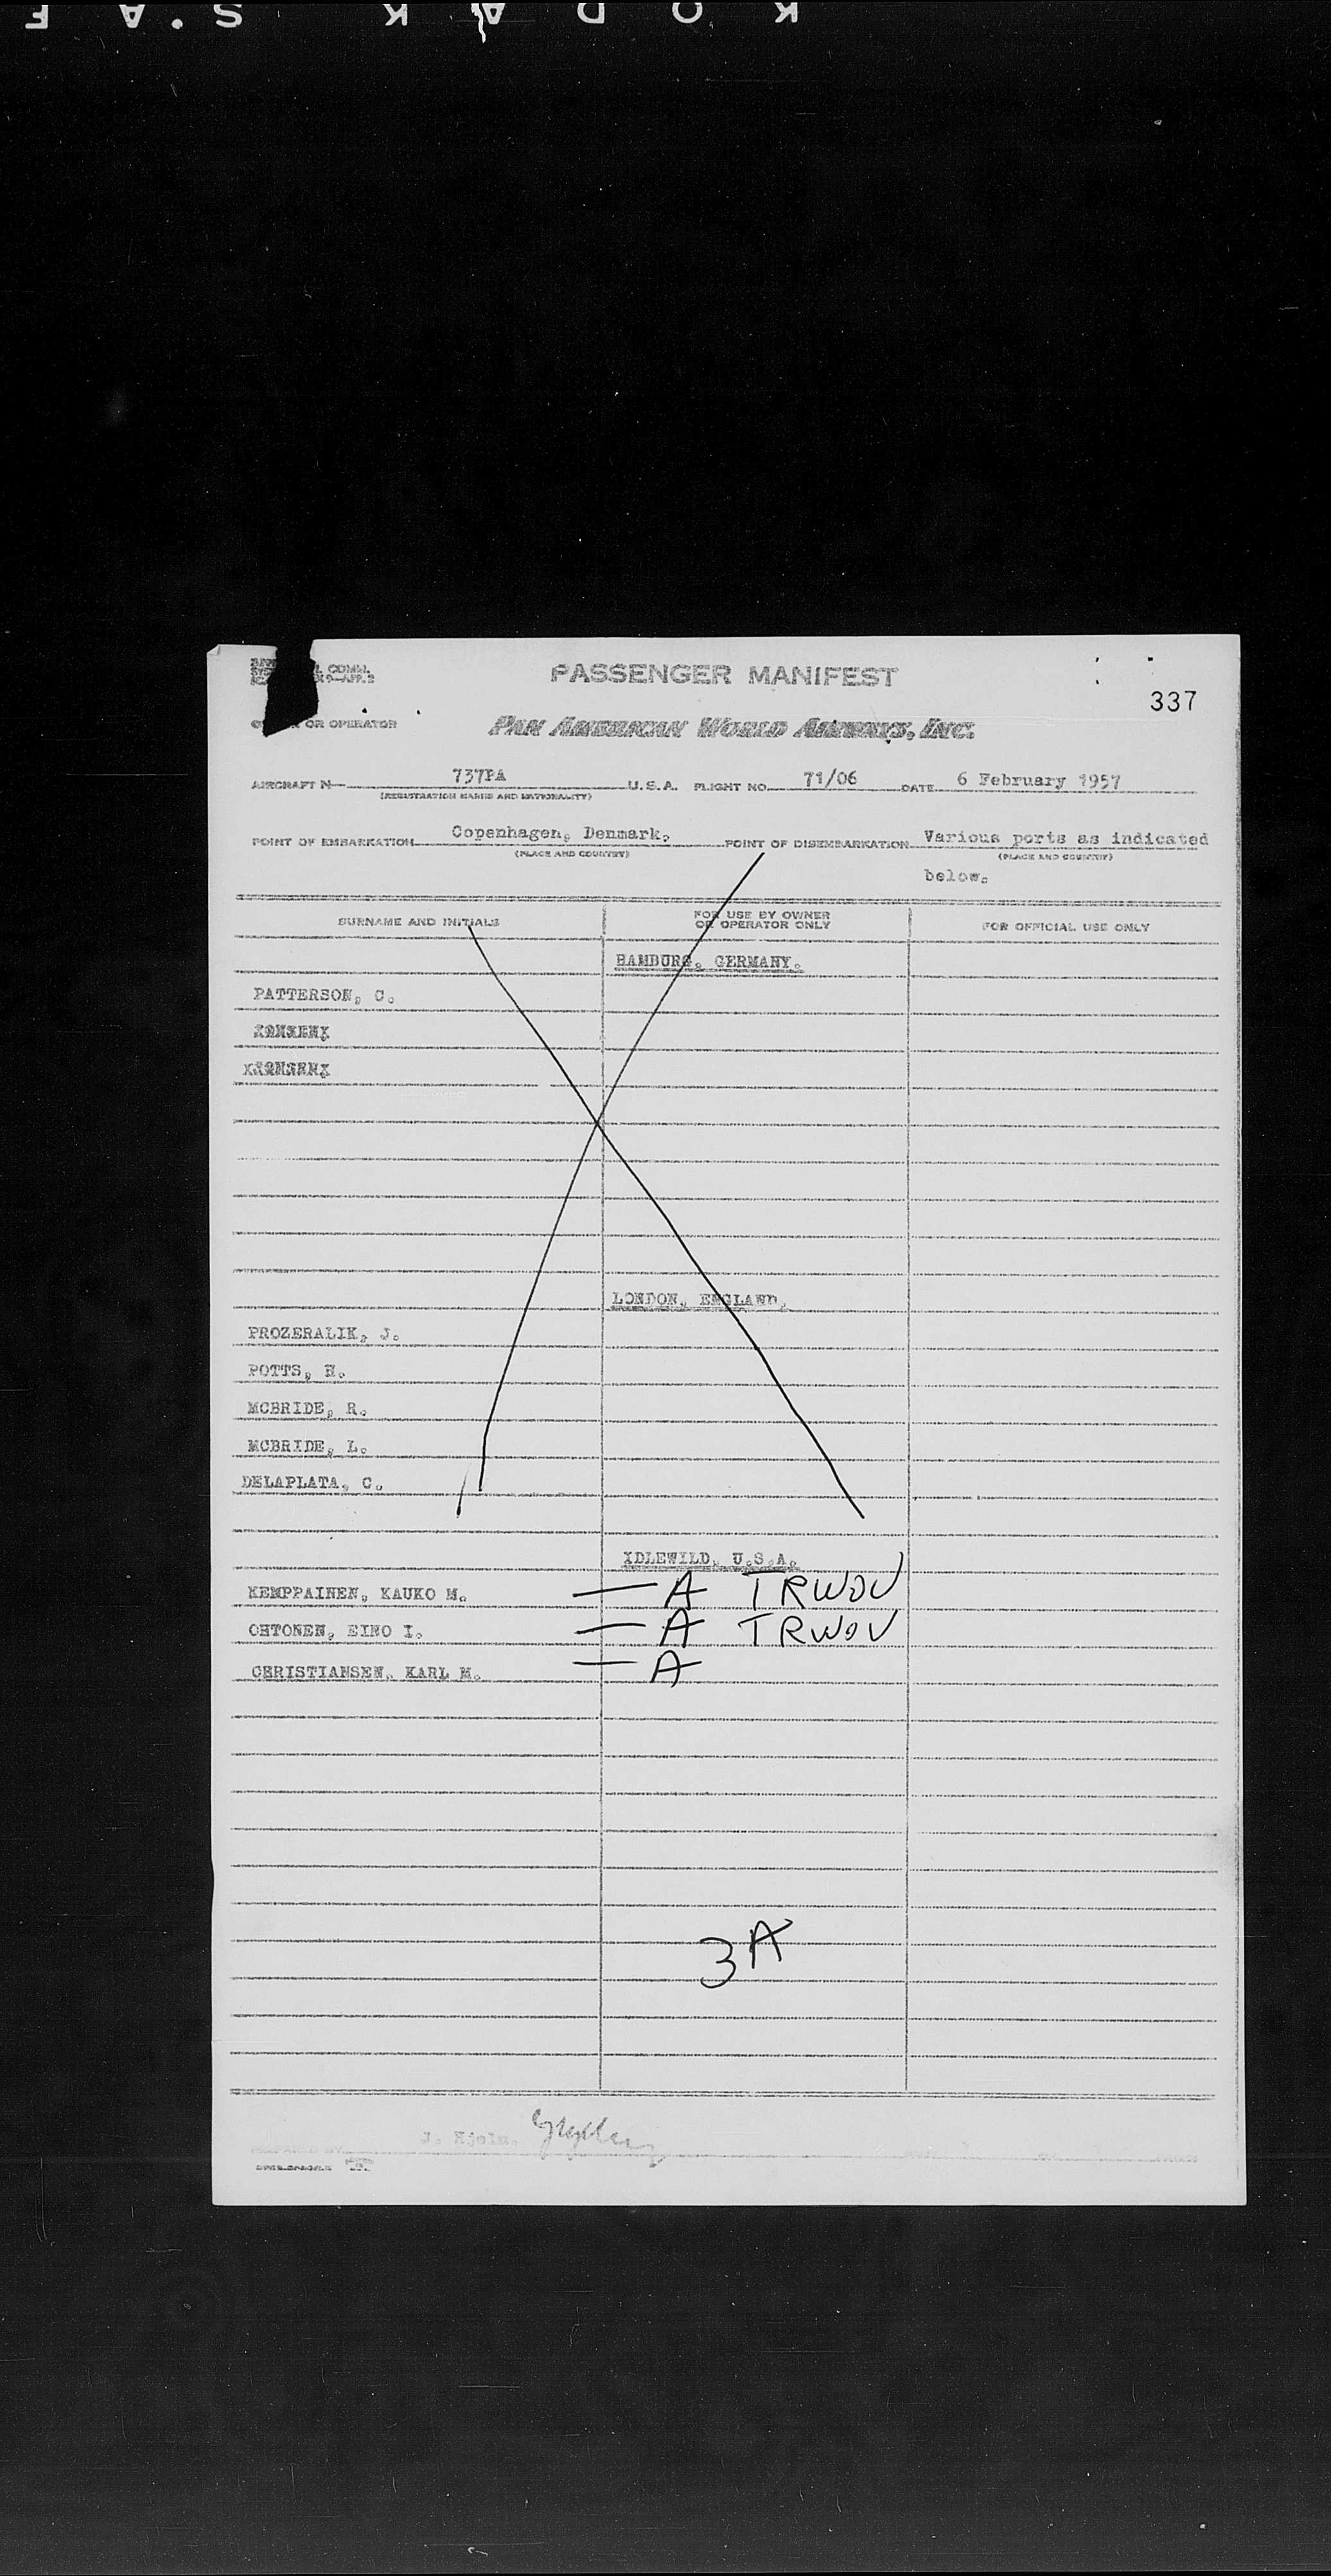 KODAK S.AF
PASSENGER MANIFEST
337
OR OPERATOR
PAN AMERICAN WORLD AIRWAYS, INC.
AIRCRAFT N 737PA U.S.A. FLIGHT NO. 71/06 DATE 6 February 1957
(REGISTRATION MARKS AND NATIONALITY)
POINT OF EMBARKATION Copenhagen, Denmark. POINT OF DISEMBARKATION Various ports as indicated
(PLACE AND COUNTRY) (PLACE AND COUNTRY)
below.
SURNAME AND INITIALS FOR USE BY OWNER OR OPERATOR ONLY FOR OFFICIAL USE ONLY
HAMBURG, GERMANY.
PATTERSON, C.
LONDON, ENGLAND.
PROZERALIK, J.
POTTS, H.
MCBRIDE, R.
MCBRIDE, L.
DELAPLATA, C.
IDLEWILD, U.S.A.
KEMPPAINEN, KAUKO M. — A TRWOV
OHTONEN, EINO I. — A TRWOV
CHRISTIANSEN, KARL M. — A
3A